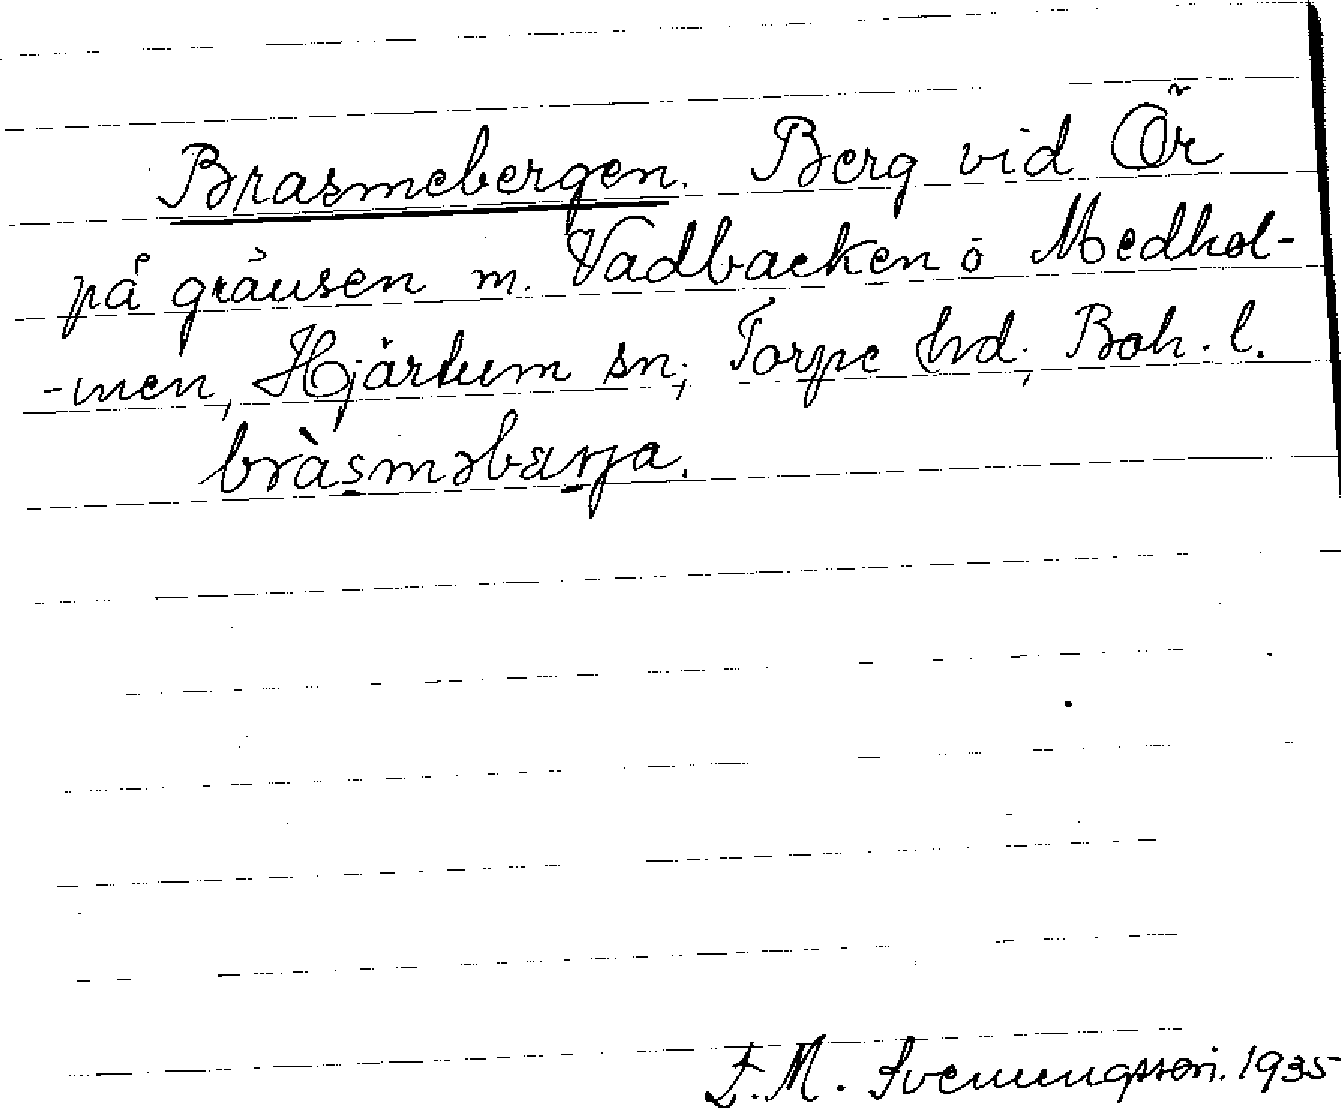 Brasmebergen. Berg vid Ör
på gränsen m. Vadbacken o Medhol-
-men, Hjärtum sn; Torpe hd; Boh. l.
bràsməbærja.
F. M. Svenungsson. 1935